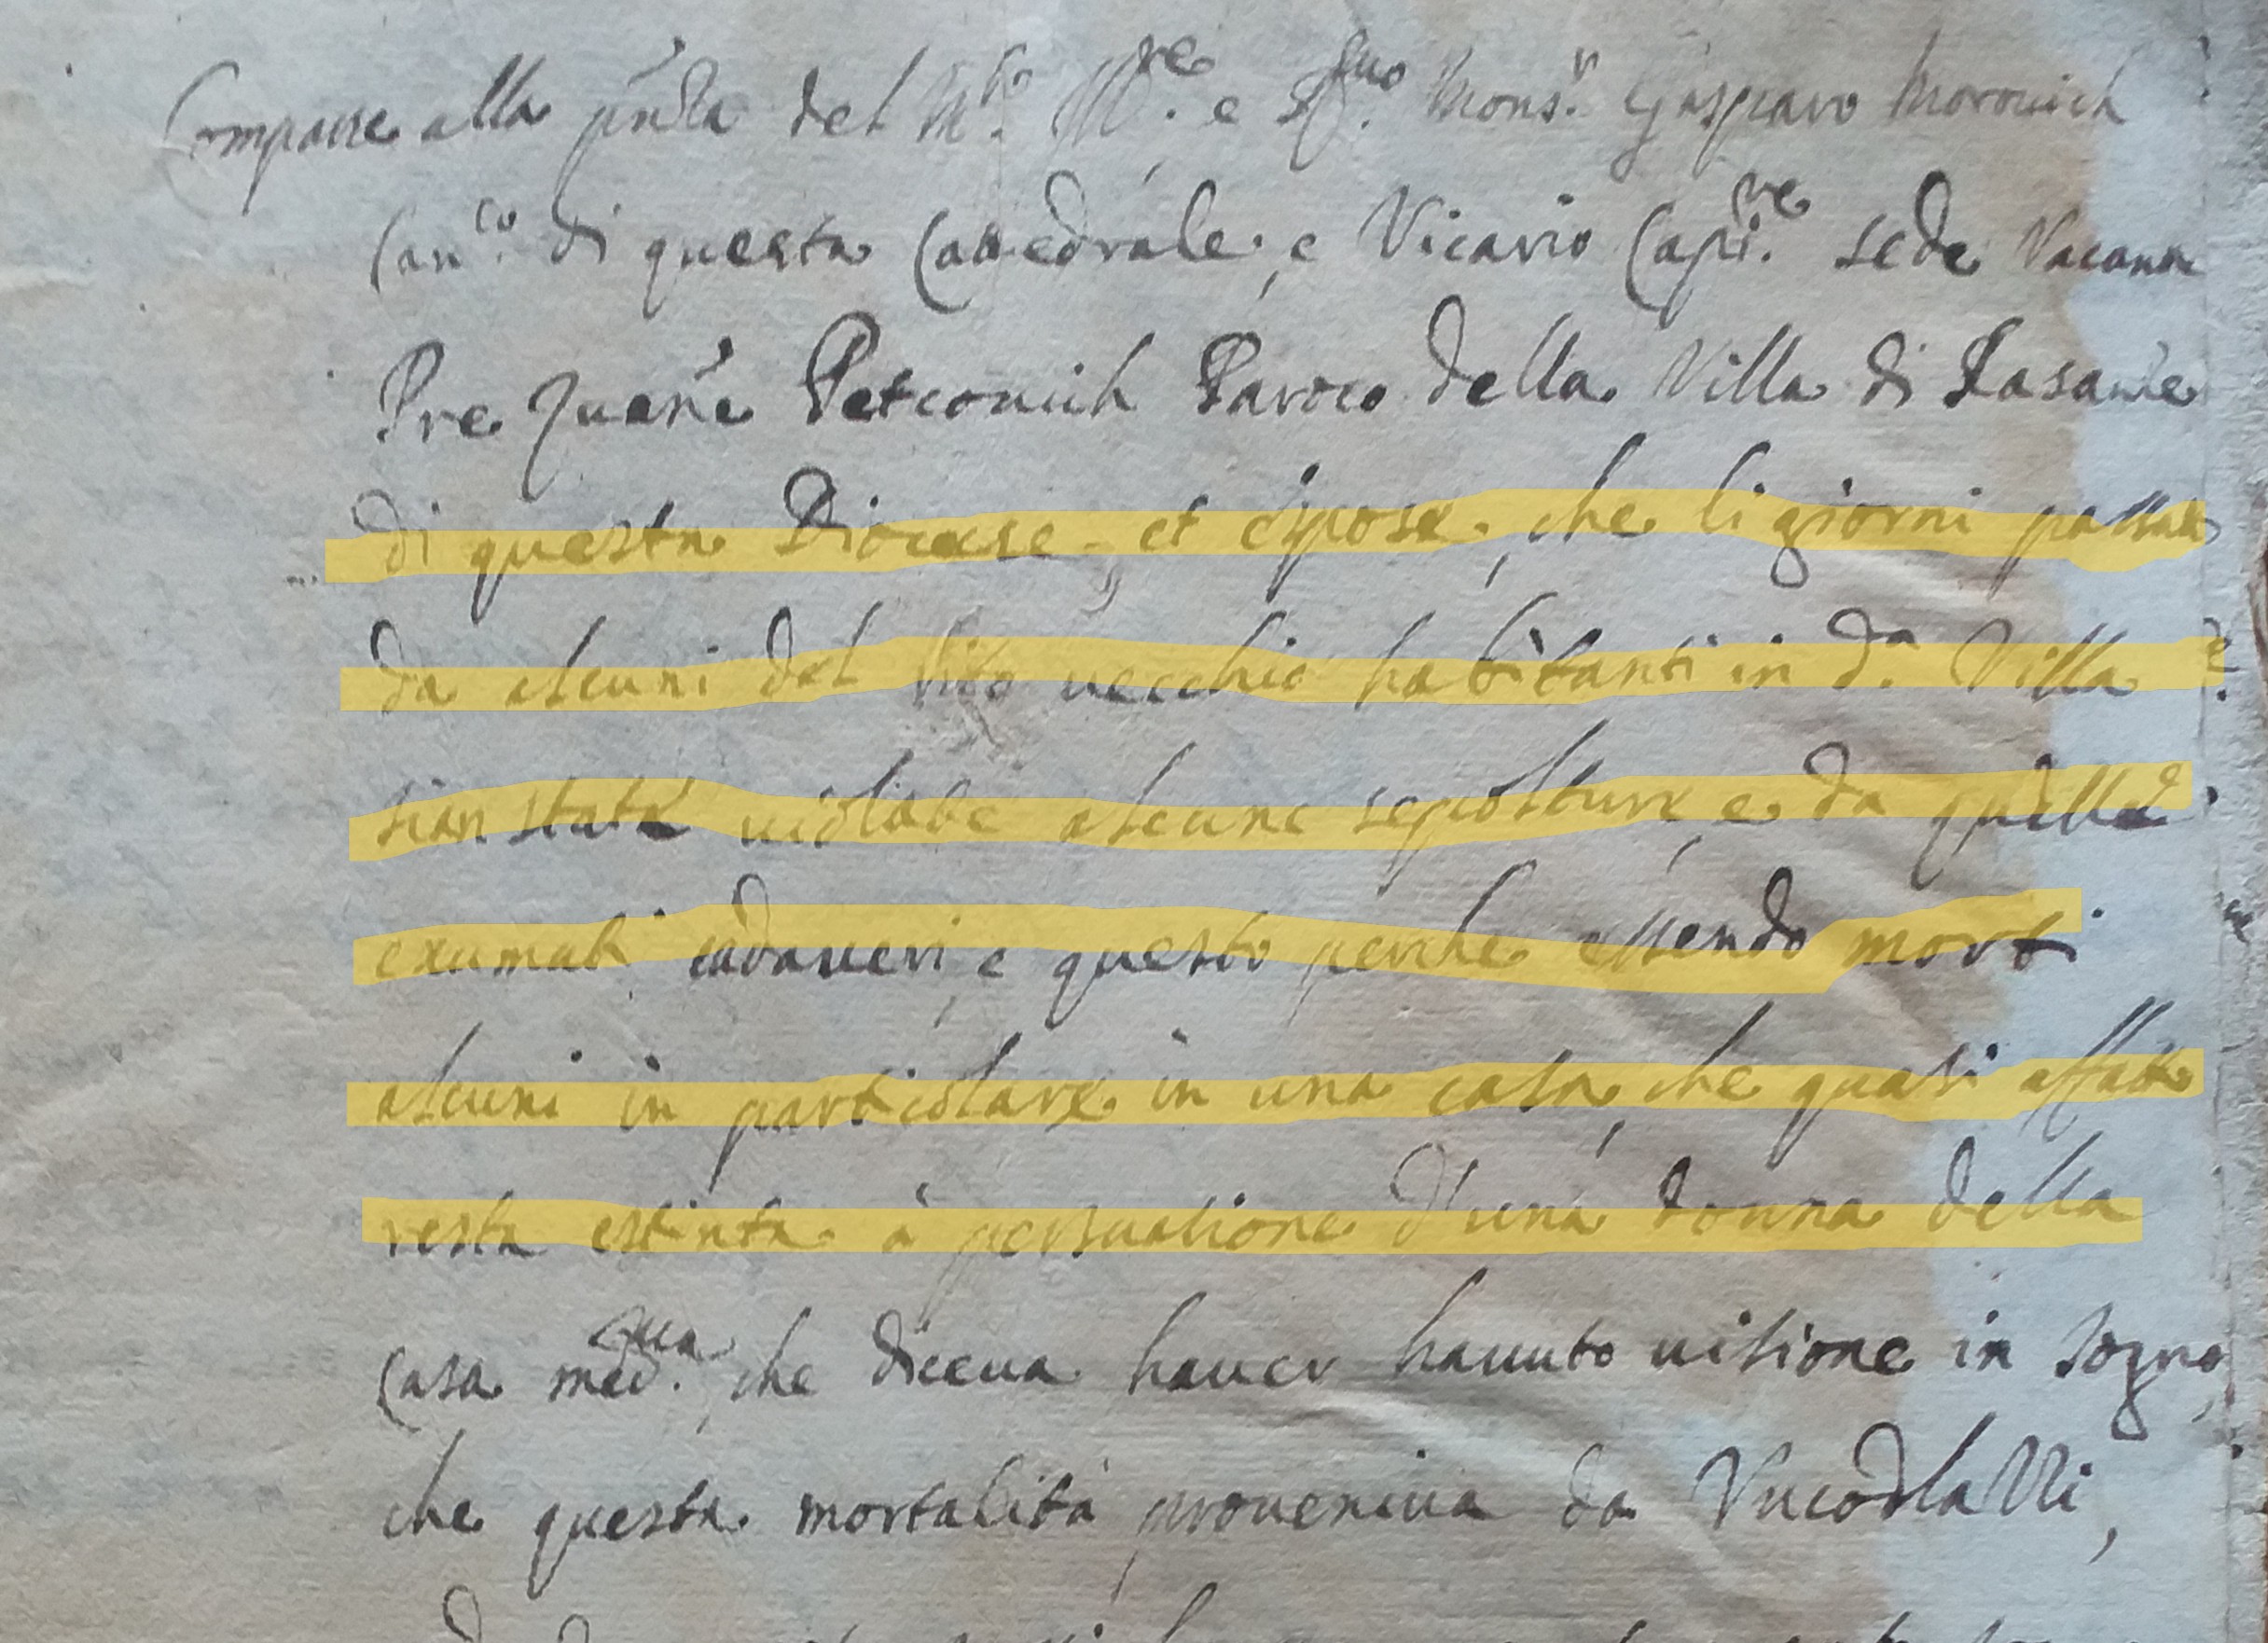 Comparve alla pnta del M.to Ill.re e R.mo Mons.r Gasparo Morovich
Can.co di questa Cattedrale, e Vicario Cap.re sede Vacante
Pre Zuane Petcovich Paroco della Villa di Rasanze
di questa Diocese, et espose, che li giorni passati
da alcuni del rito vecchio habitanti in d.a Villa
sian state violate alcune sepolture, e da quelle
exumati cadaveri, e questo perche essendo morti
alcuni in particolare in una casa, che quasi affatto
resta estinta à persuasione d'una donna della
Casa med.ma, che diceva haver havuto visione in sogno,
che questa mortalità proveniva da Vucodlazzi,